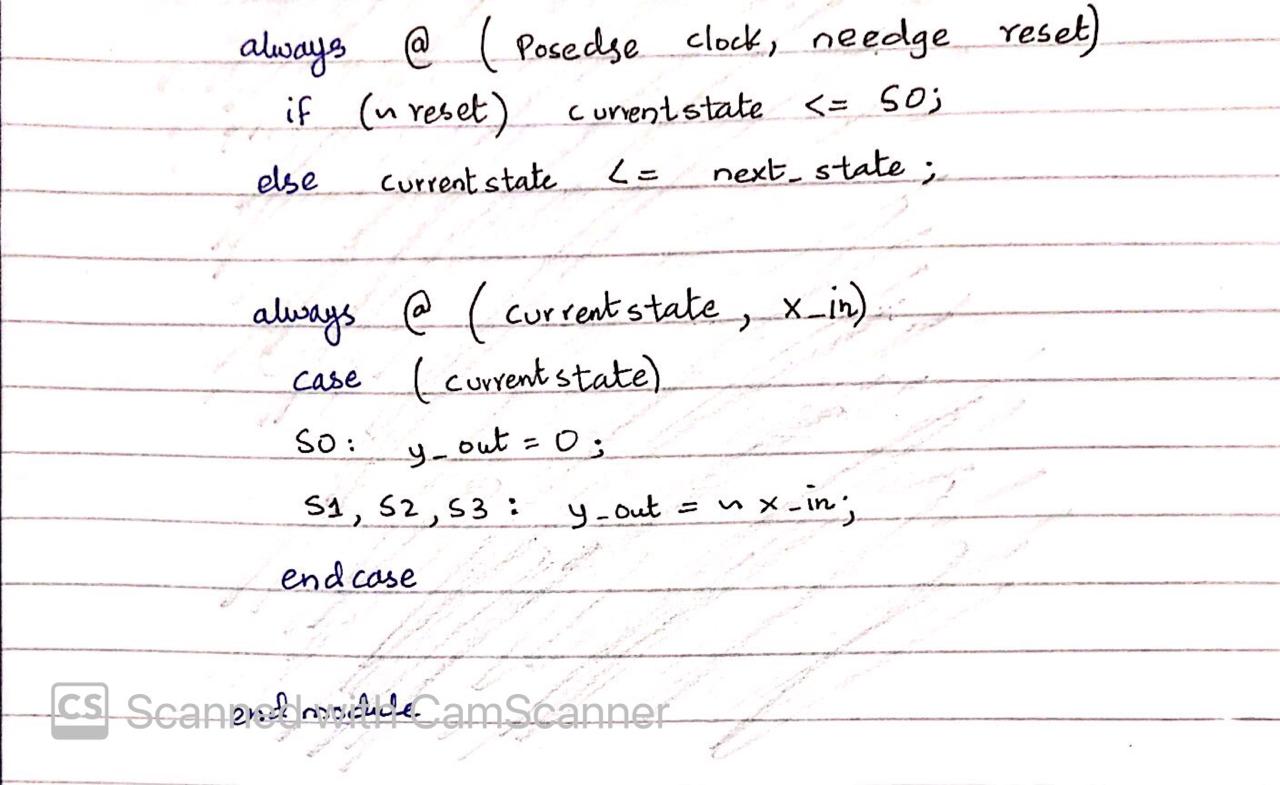 always @ ( Posedge clock, needge reset)
if (~ reset) currentstate <= S0;
else currentstate <= next_state ;
always @ ( currentstate , x_in)
case ( currentstate)
S0: y_out = 0 ;
S1, S2, S3 : y_out = ~ x_in;
endcase
end module
CS Scanned with CamScanner